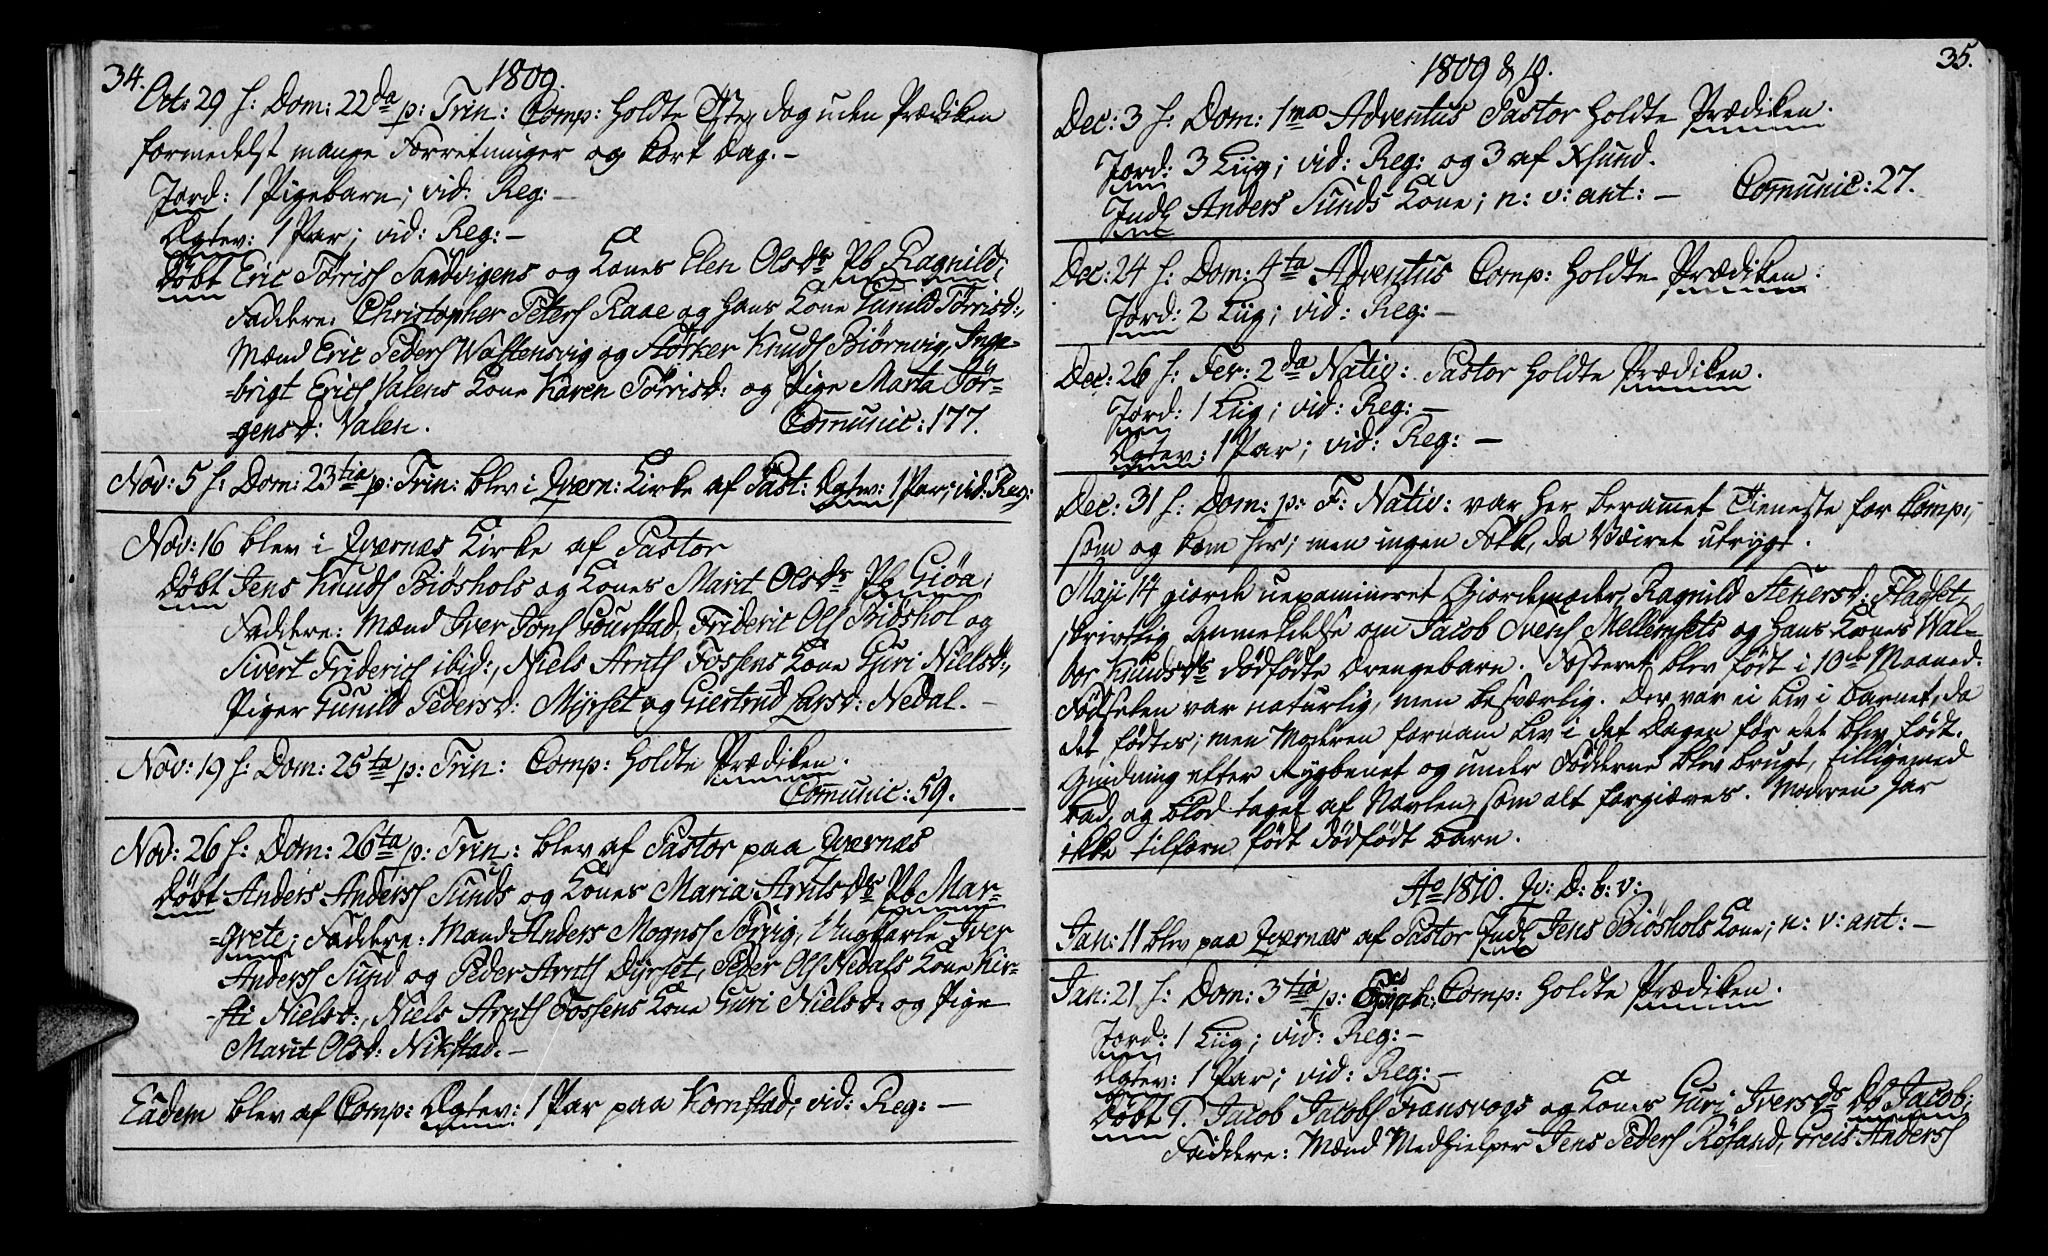 34.
1809.
Oct: 29 h: Dom: 22da p: Trin: Comp: holdte Tieneste dog uden Prædiken
formedelst mange Forretninger og kort Dag. –
Jord: 1 Pigebarn; vid: Reg: –
Ægtev: 1 Par; vid: Reg: –
Døbt Eric Torriss Sandvigens og Kones Elen Olsdr Pb Ragnild;
Faddere: Christopher Peters Raae og hans Kone Gunild Torrisd:,
Mænd Eric Peders Wastensvig og Størker Knuds Biørnvig, Inge-
-brigt Erics Valens Kone Karen Torrisd: og Pige Marta Jør-
-gensd: Valen.
Communic: 177.
Nov: 5 h: Dom: 23tia p: Trin: blev i Qværn: Kirke af Past: Ægtev: 1 Par; vid: Reg:
Nov: 16 blev i Qværnæs Kirke af Pastor
Døbt Jens Knuds Biøshols og Kones Marit Olsdr Pb Giøa;
Faddere: Mænd Iver Jons Gourstad, Frideric Ols Biøshol og
Sivert Friderics ibid:, Niels Arnts Fossens Kone Guri Nielsd:,
Piger Gunild Pedersd: Myrset og Giertrud Larsd: Nedal. –
Nov: 19 h: Dom: 25ta p: Trin: Comp: holdte Prædiken.
Communic: 59.
Nov: 26 h: Dom: 26ta p: Trin: blev af Pastor paa Qværnæs
Døbt Anders Anderss Sunds og Kones Maria Arntsdr Pb Mar-
-grete; Faddere: Mand Anders Mogns Sørvig, Ungkarle Iver
Anderss Sund og Peder Arnts Dyrset, Peder Ols Nedals Kone Kir-
-sti Nielsd:, Niels Arnts Fossens Kone Guri Nielsd: og Pige
Marit Olsd: Nikstad. –
Eadem blev af Comp: Ægtev: 1 Par paa Kornstad; vid: Reg: –
1809 & 10.
35.
Dec: 3 h: Dom: 1ma Adventus Pastor holdte Prædiken.
Jord: 3 Liig; vid: Reg: og 3 af Xsund.
Indl Anders Sunds Kone; n: v: ant: –
Communic: 27.
Dec: 24 h: Dom: 4ta Adventus Comp: holdte Prædiken.
Jord: 2 Liig; vid: Reg: –
Dec: 26 h: Fer: 2da Nativ: Pastor holdte Prædiken.
Jord: 1 Liig; vid: Reg: –
Ægtev: 1 Par; vid: Reg: –
Dec: 31 h: Dom: p: F: Nativ: var her berammet Tieneste for Comp:,
som og kom her; men ingen Folk, da Væiret utrygt.
Maji 14 giorde uexamineret Giordemoder, Ragnild Stenersd: Fladset,
skrivtlig Anmeldelse om Jacob Ivers Mellemsets og hans Kones Wal-
bor Knudsdrs dødfødte Drengebarn. Fosteret blev født i 10de Maaned.
Fødselen var naturlig, men besværlig. Der var ei Liv i Barnet, da
det fødtes; men Moderen fornam Liv i det Dagen før det blev født.
Gnidning efter Rygbenet og under Fødderne blev brugt, tilligemed
Bad, og Blod taget af Navlen, som alt forgiæves. Moderen har
ikke tilforn født dødfødt Barn.
Ao 1810. Qv: D: b: v:
Jan: 11 blev paa Qværnæs af Pastor Indl Jens Biøshols Kone; n: v: ant: –
Jan: 21 h: Dom: 3tia p: Epiph: Comp: holdte Prædiken.
Jord: 1 Liig; vid: Reg: –
Ægtev: 1 Par; vid: Reg: –
Døbt Jacob Jacobs Transvogs og Kones Guri Iversdr Db Jacob;
Faddere: Mænd Medhielper Jens Peders Røsand, Greis Anderss